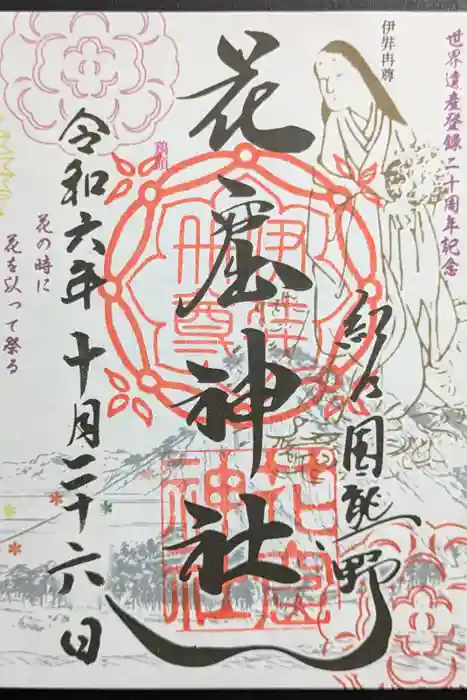 世界遺産登録二十周年記念
伊弉冉尊
紀の国熊野
花窟神社
伊弉冉尊
花窟神社
令和六年十月二十六日
花の時に
花を以って祭る